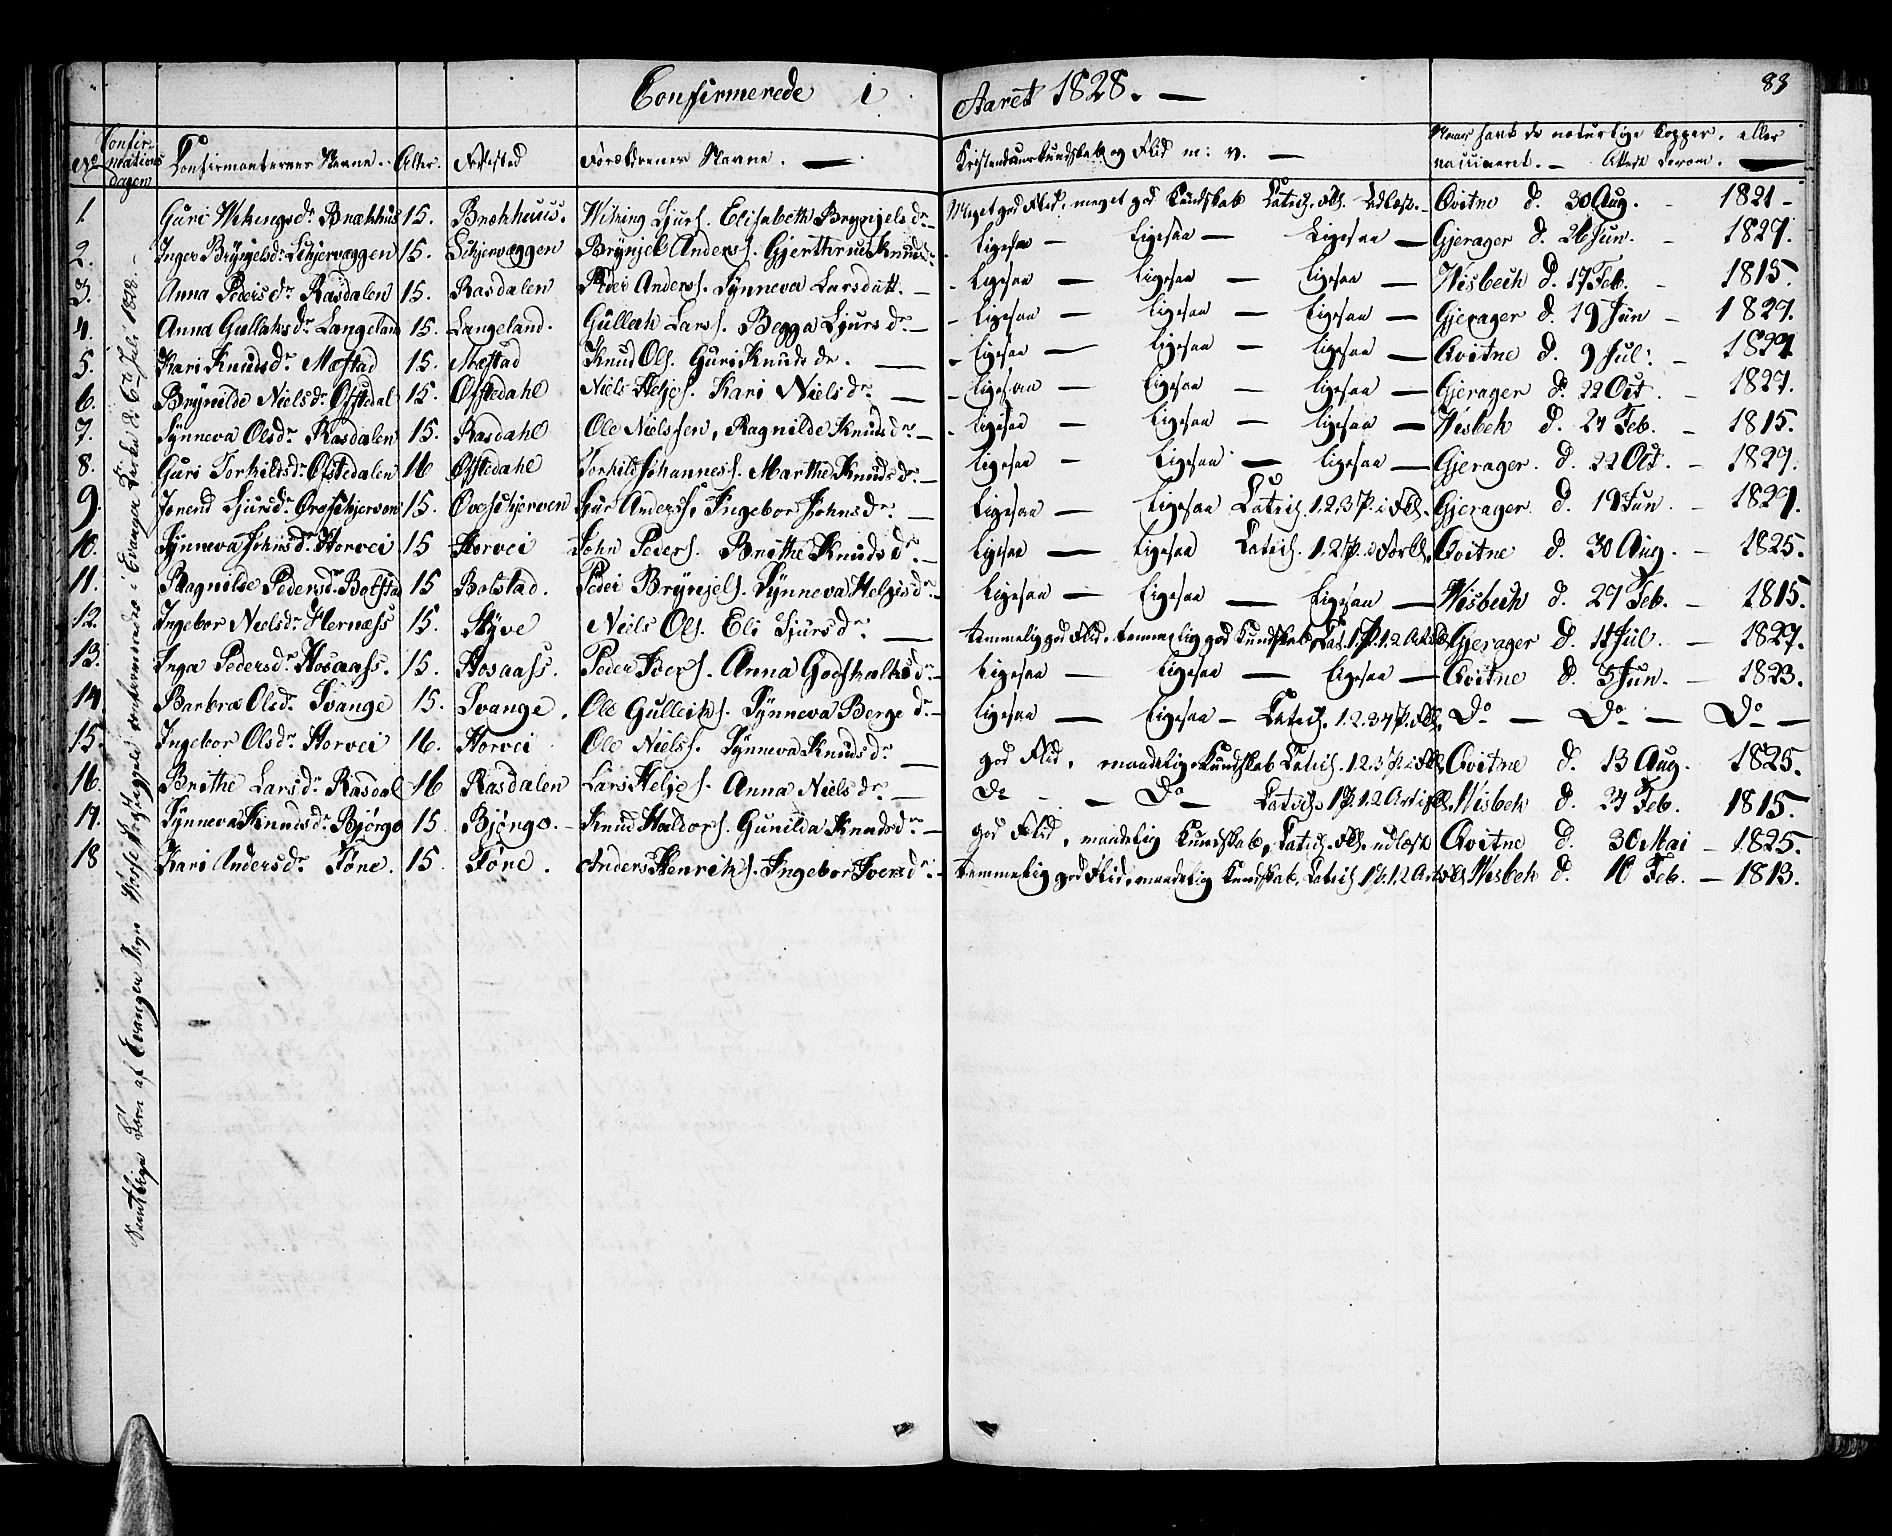 Confirmerede i Aaret 1828. —
83
No Confirmations dagen Confirmanternes Navne. Alter. Opholdssted Forældrenes Navne. — Kristendomskundskab og Flid m: v. — Naar havt de naturlige Kopper. eller vaccineret. — Attest derom. —
Samtlige Børn af Evanger Sogn Vosse Præstegjeld confirmerede i Evanger Kirke d: 6te Juli 1828. —
1. Guri Wikingsdr Brækhus 15. Brækhuus. Wiking Sjurs. Elisabeth Brynjelsdr. — Meget god Flid. meget god Kundskab Catech. Fkl. Udlæst. — Qvitne d. 30 Aug. — 1821 —
2. Inger Brynjelsdr. Schjervæggen 15. Schjervæggen Brynjel Anders. Gjerthrud Knudsdr. Ligesaa — Ligesaa — Ligesaa — Gjerager d. 26 Jun. — 1827.
3. Anna Pedersdr Rasdalen 15. Rasdalen Peder Anders. Synneva Larsdatt. — Ligesaa — Ligesaa — Ligesaa — Wisbech d. 17 Feb. — 1815.
4. Anna Gullaksdr. Langeland 15. Langeland. Gullak Lars. Begga Sjursdr. — Ligesaa — Ligesaa — Ligesaa — Gjerager d. 19 Jun — 1827.
5. Kari Knudsdr Mæstad 15. Mæstad Knud Ols. Guri Knudsdr. — Ligesaa — Ligesaa — Ligesaa — Qvitne d. 9 Jul: — 1824
6. Brynilde Nielsdr. Øfstedal 15. Øfstedahl Niels Helje s. Kari Nielsdr. — Ligesaa — Ligesaa — Ligesaa — Gjerager d. 22 Oct. — 1827.
7. Synneva Olsdr. Rasdalen 15. Rasdahl Ole Nielssen, Ragnilde Knudsdr. — Ligesaa — Ligesaa — Ligesaa — Wisbek d. 27 Feb. — 1815.
8. Guri Torkildsdr. Øfstedalen 16 Øfstedahl Torkild Johannes s. Marthe Knudsdr. — Ligesaa — Ligesaa — Ligesaa — Gjerager. d. 22 Oct. — 1827.
9. Sjursdr. 15. Sjur Anders s. Ingebor Johnsdr. — Ligesaa — Ligesaa Catech. 1.2.3 P. i Fkl. Gjerager d. 19 Jun — 1827.
10. Synneva Johnsdr. Horvei 15 Horvei John Peder s. Brithe Knudsdr. — Ligesaa — Ligesaa Catech. 1.2 P. i Forkl. Qvitne d. 30 Aug. — 1825.
11. Ragnilde Pedersdr. Bolstad 15 Bolstad. Peder Brynjels. Synneva Helgesdr. — Ligesaa — Ligesaa — Ligesaa — Wisbech d. 27 Feb. — 1815.
12. Ingebor Nielsdr. Hernæss 15. Styve Neils Ols. Eli Sjursdr. — temmelig god Flid. temmelig god Kundskab, Cat. 1 P. 1.2 Art. Gjerager d. 11 Jul. — 1827.
13. Inga Pedersdr. Hosaass. 15. Hosaass. Peder Iver s. Anna Godskalksdr. — Ligesaa — Ligesaa — Ligesaa — Qvitne d. 5 Jun. — 1823.
14. Barbra Olsdr. Evange 15. Evange. Ole Gulleiks. Synneva Berge dr. — Ligesaa — Ligesaa — Catech. 1.2.3 P. Fkl. Do — Do — Do —
15. Ingebor Olsdr. Horvei 16. Horvei Ole Niels s. Synneva Knudsdr. — god Flid, maadelig Kundskab Catech. 1.2.3 P. i Fkl. Qvitne d. 13 Aug. 1825.
16. Brithe Larsdr. Rasdal 16 Rasdalen Lars Helje s. Anna Nielsdr. — Do — Do — Catech. 1 P. 1.2 Art. i Fkl. Wisbek d. 27 Feb. 1815.
17. Synneva Knudsdr. Bjørgo 15. Bjørgo. Knud Haldor s. Gunilda Knudsdr. — god Flid, maadelig Kundskab, Catech. Fkl. udlæst Qvitne d. 30 Mai — 1825.
18 Kari Andersdr. Tøne. 15. Tøne. Anders Henrik s. Ingebor Iversdr. — temmelig god Flid, maadelig Kundskab, Catech. 1 P. 1.2 Art. Fkl. Wisbek d. 16 Feb. — 1813.